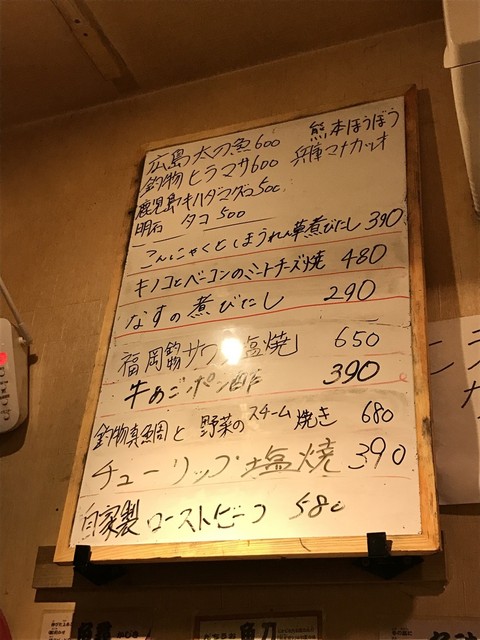 広島太刀魚600 熊本ほうぼう
釣物ヒラマサ600 兵庫マナカツオ
鹿児島キハダマグロ500
明石 タコ 500
こんにゃくとしまうれん草煮びたし 390
キノコとベーコンのミートチーズ焼 480
なすの煮びたし 290
福岡釣物サワラ塩焼 650
牛あごポン酢 390
釣物真鯛と野菜のスチーム焼き 680
チューリップ塩焼 390
自家製ローストビーフ 580